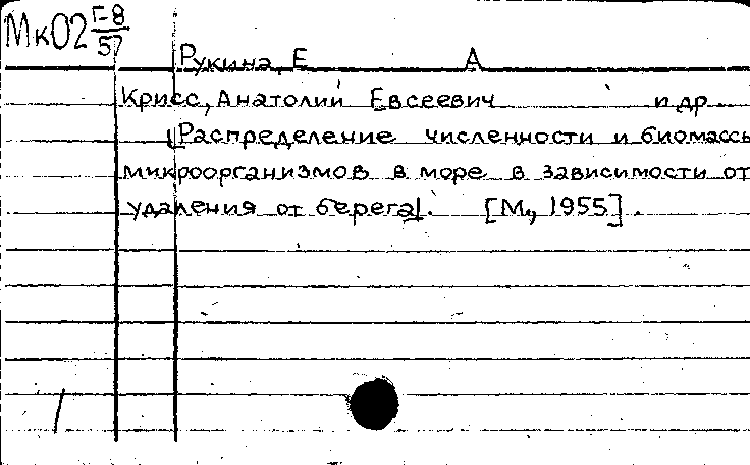 Мк02 Г-8
57
Рукина, Е А
Крисс, Анатолий Евсеевич и др
|Распределение численности и биомассы
микроорганизмов в море в зависимости от
удаления от берега|. [М, 1955].